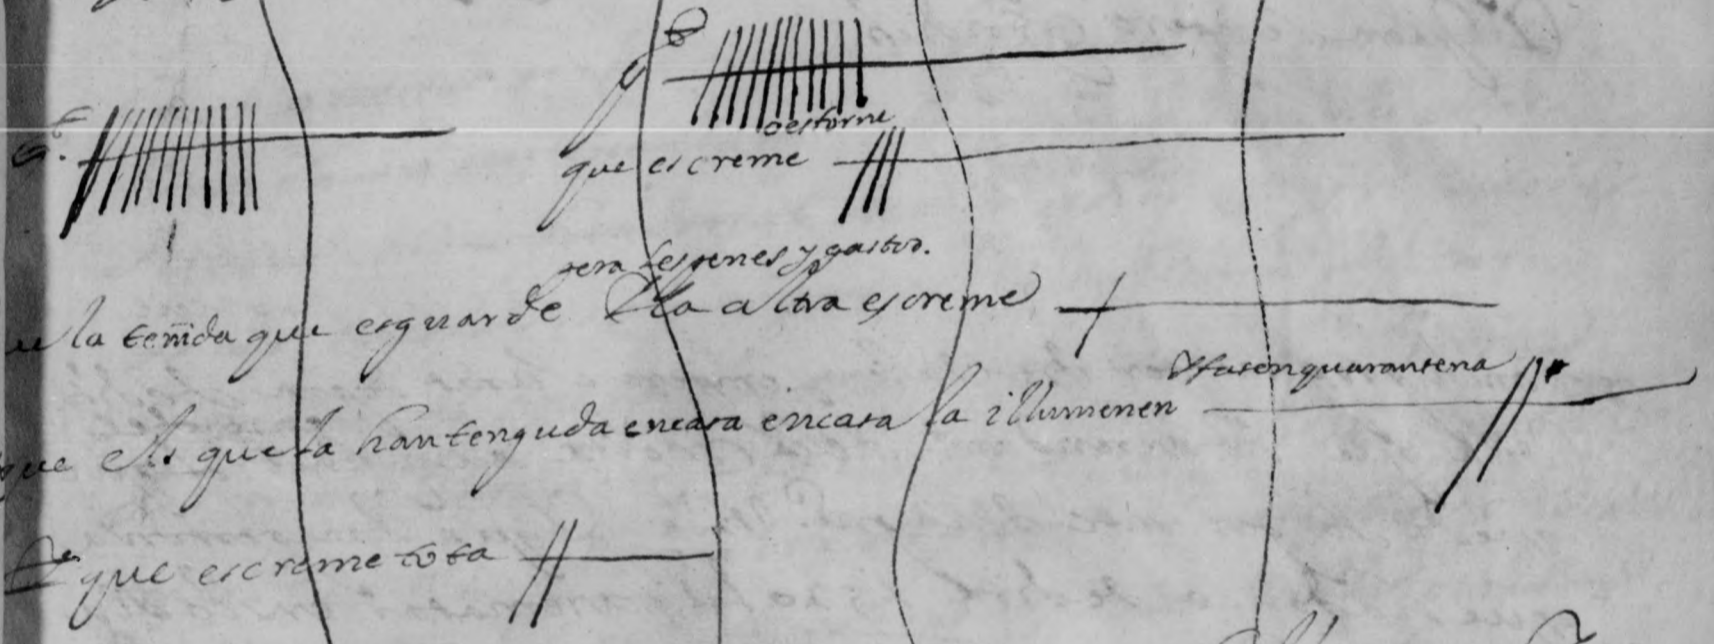 o es torne
que es creme
pera les penes y gastos.
la tenida que es guarde la altra es creme
fasen quarantena
que els que la han tenguda encara encara la illumenen
que es creme tota